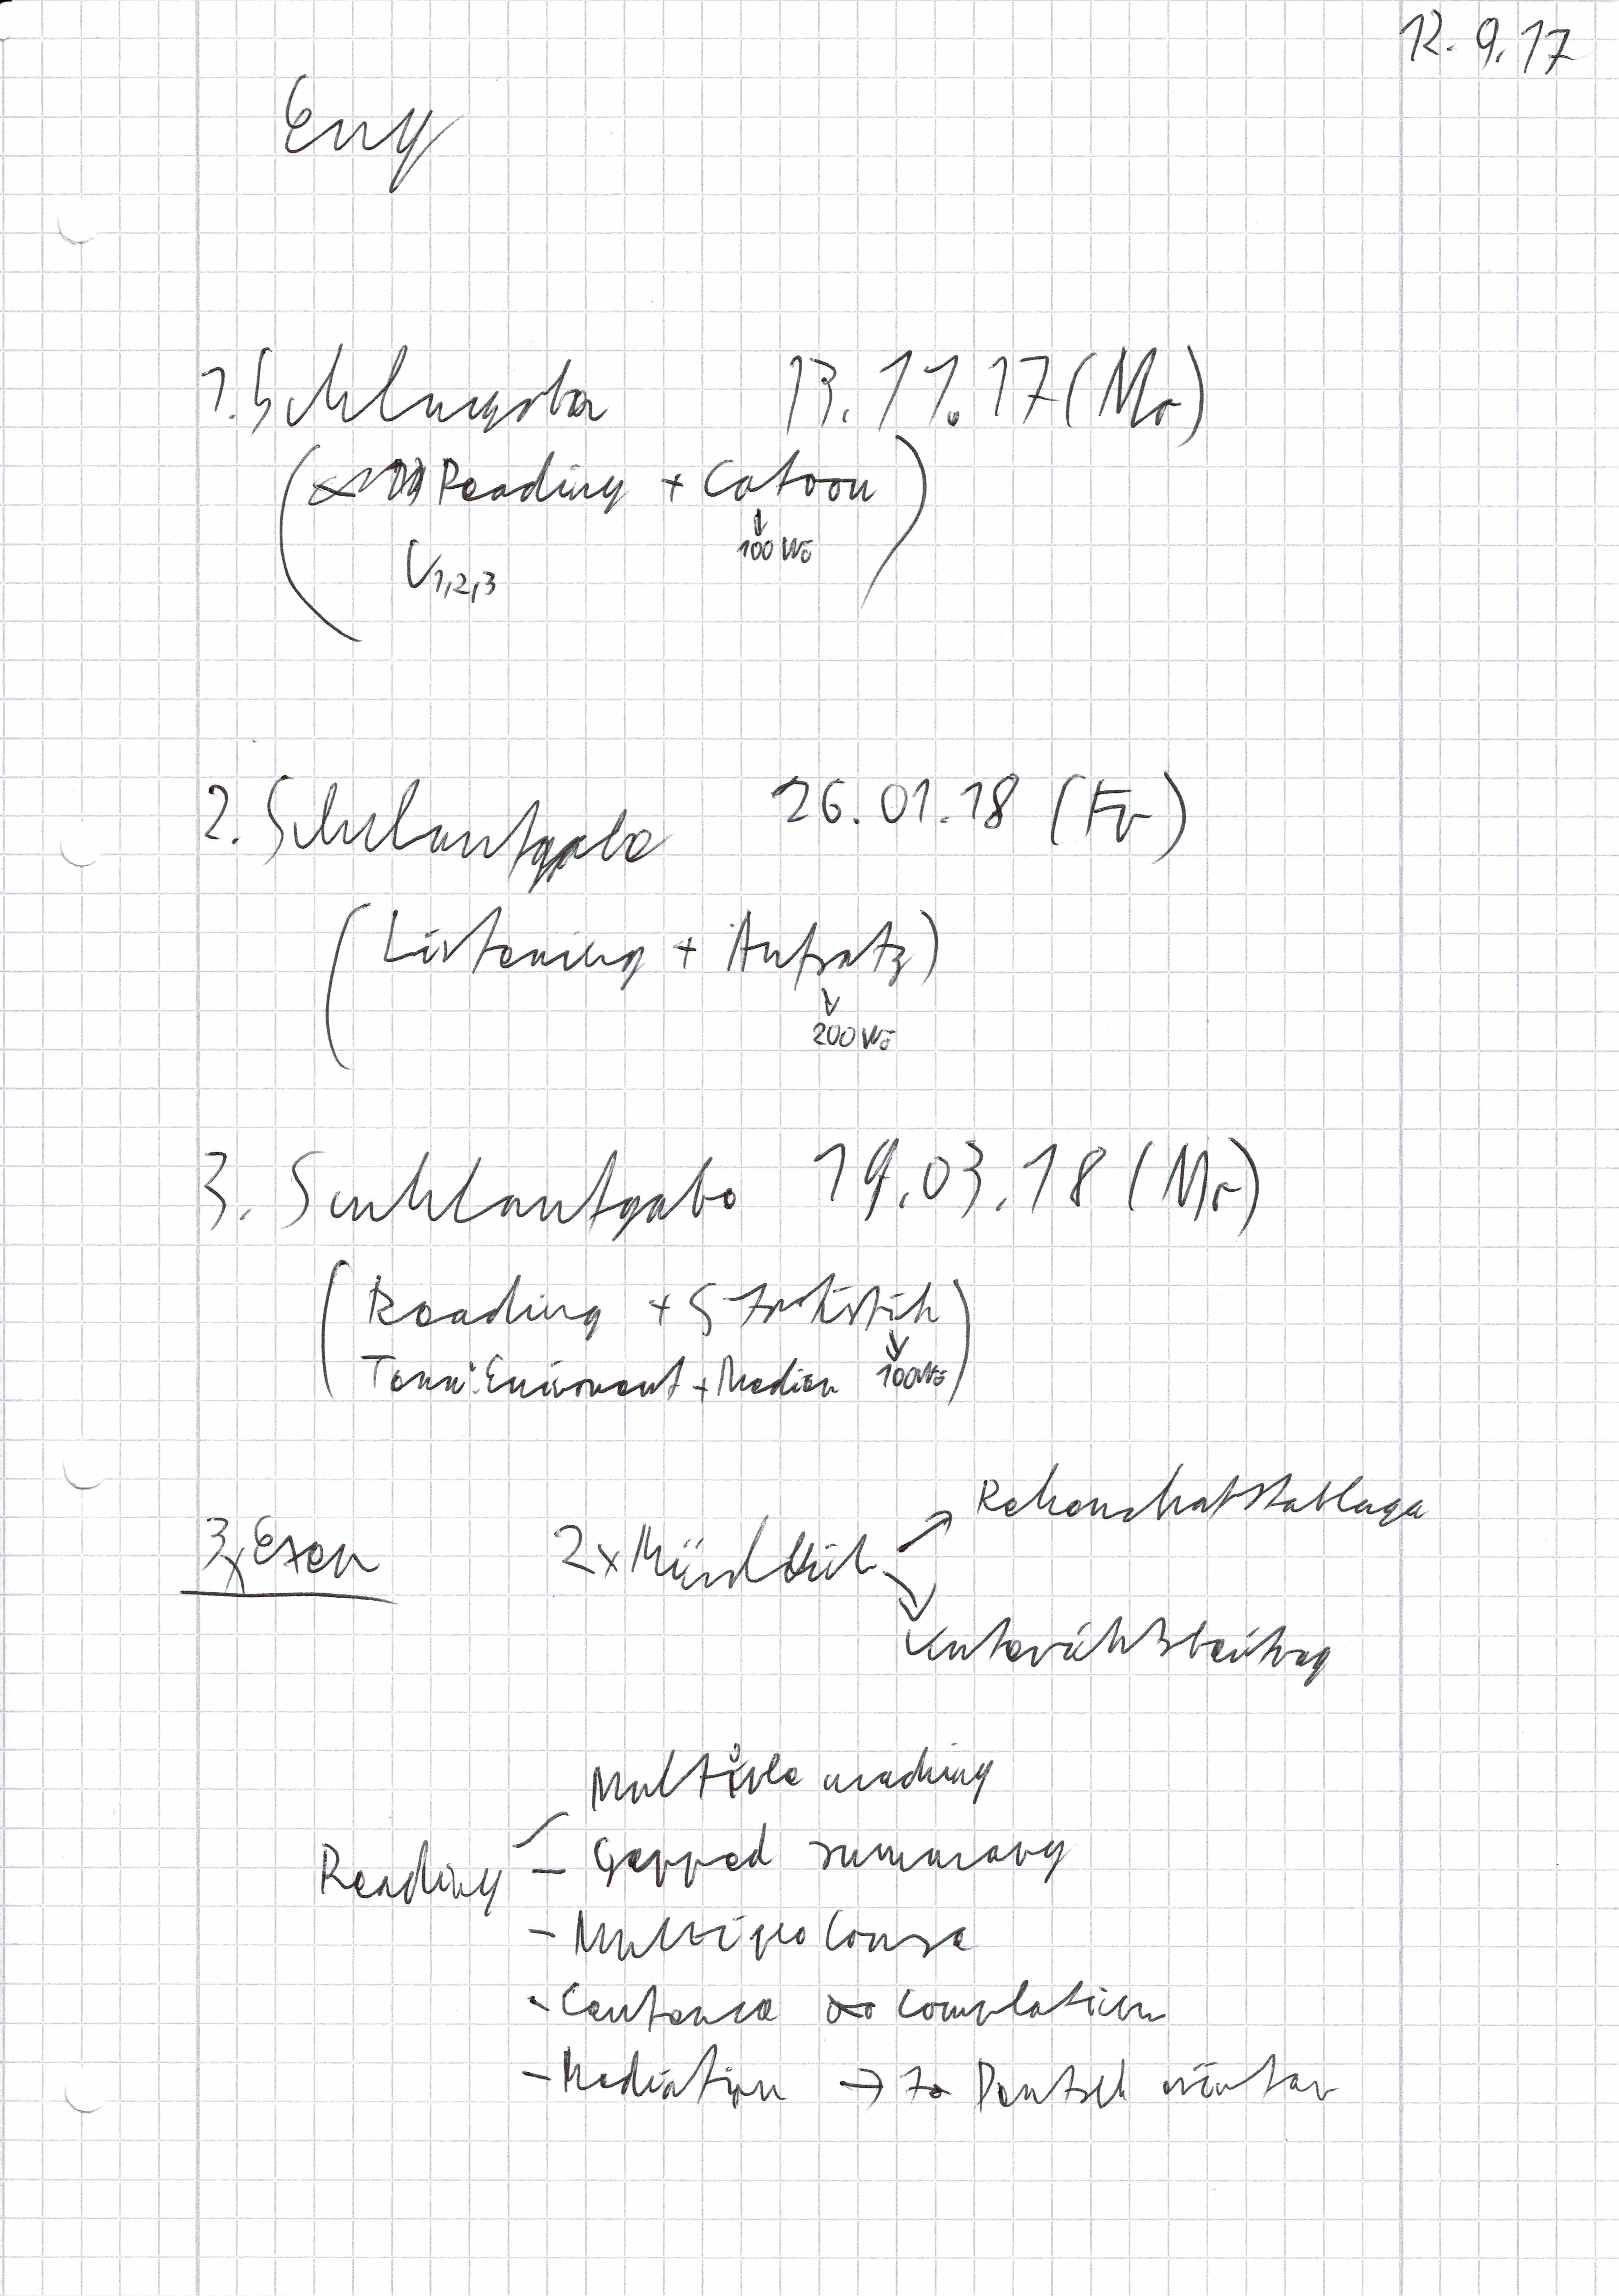 12.9.17
Eng
1. Schlaufgaba 13.11.17 (Mo)
(Reading + Catoon)
100 Wö
U1,2,3
2. Schulaufgabe 26.01.18 (Fr)
(Listening + Aufsatz)
200 Wö
3. Schulaufgabe 19.03.18 (Mo)
(Reading + Statistik
Tem: Enivoment + Medien 100Wö)
3x Exen 2x Mündlich
Rehenschaftsablage
Unterichtsbeitrag
Multiple maching
Reading - Gapped summary
- Multiple
- Centence Complation
- Mediation → Deutsch